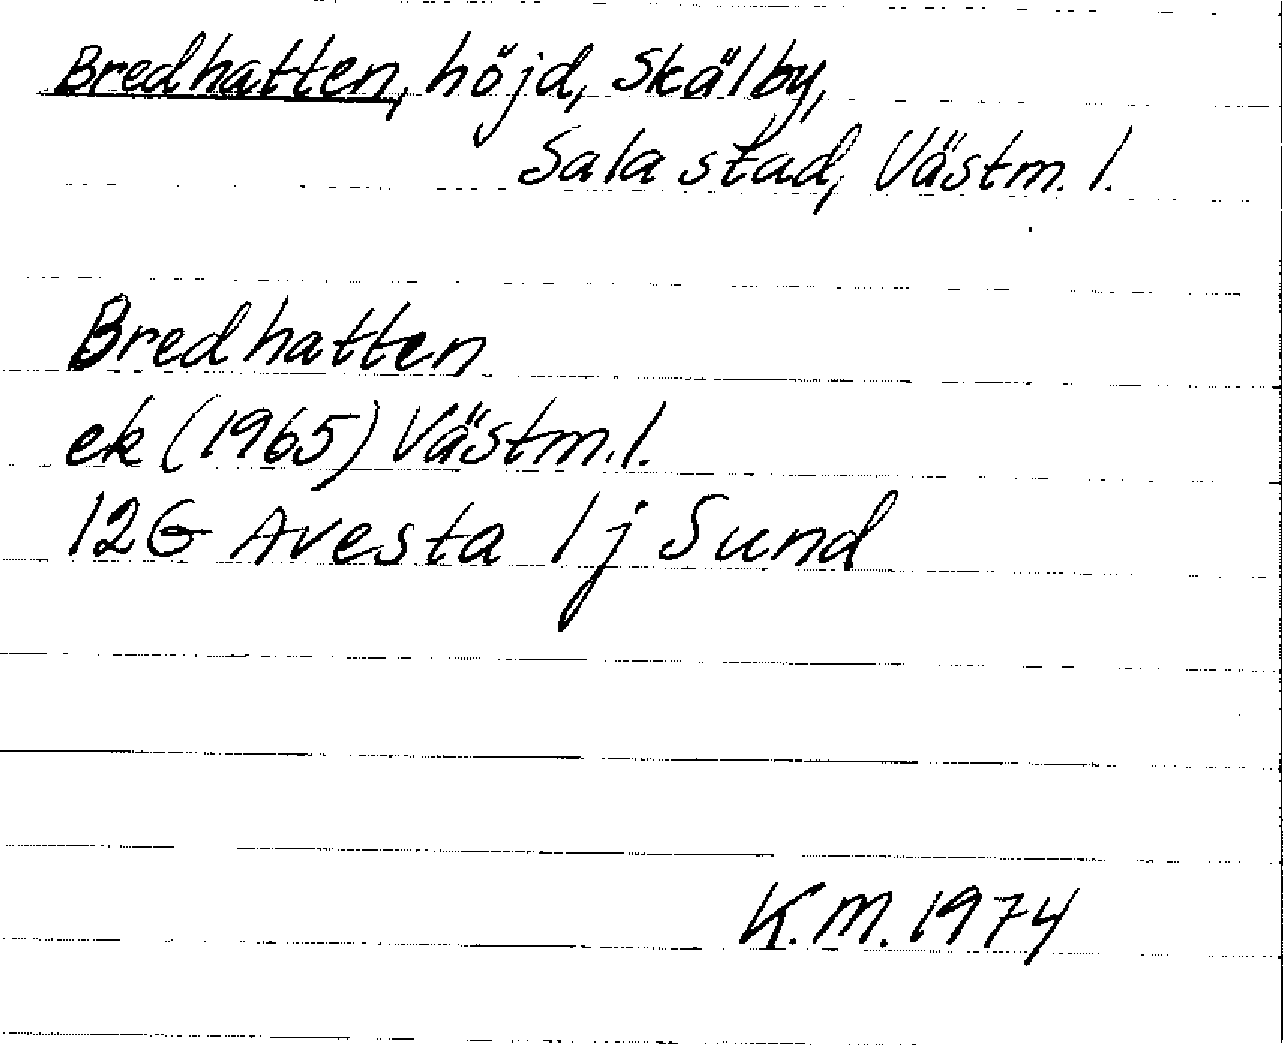 Bredhatten, höjd, Skälby,
Sala stad, Västm. l.
Bredhatten
ek (1965) Västm. l.
12G Avesta 1j Sund
K.M. 1974